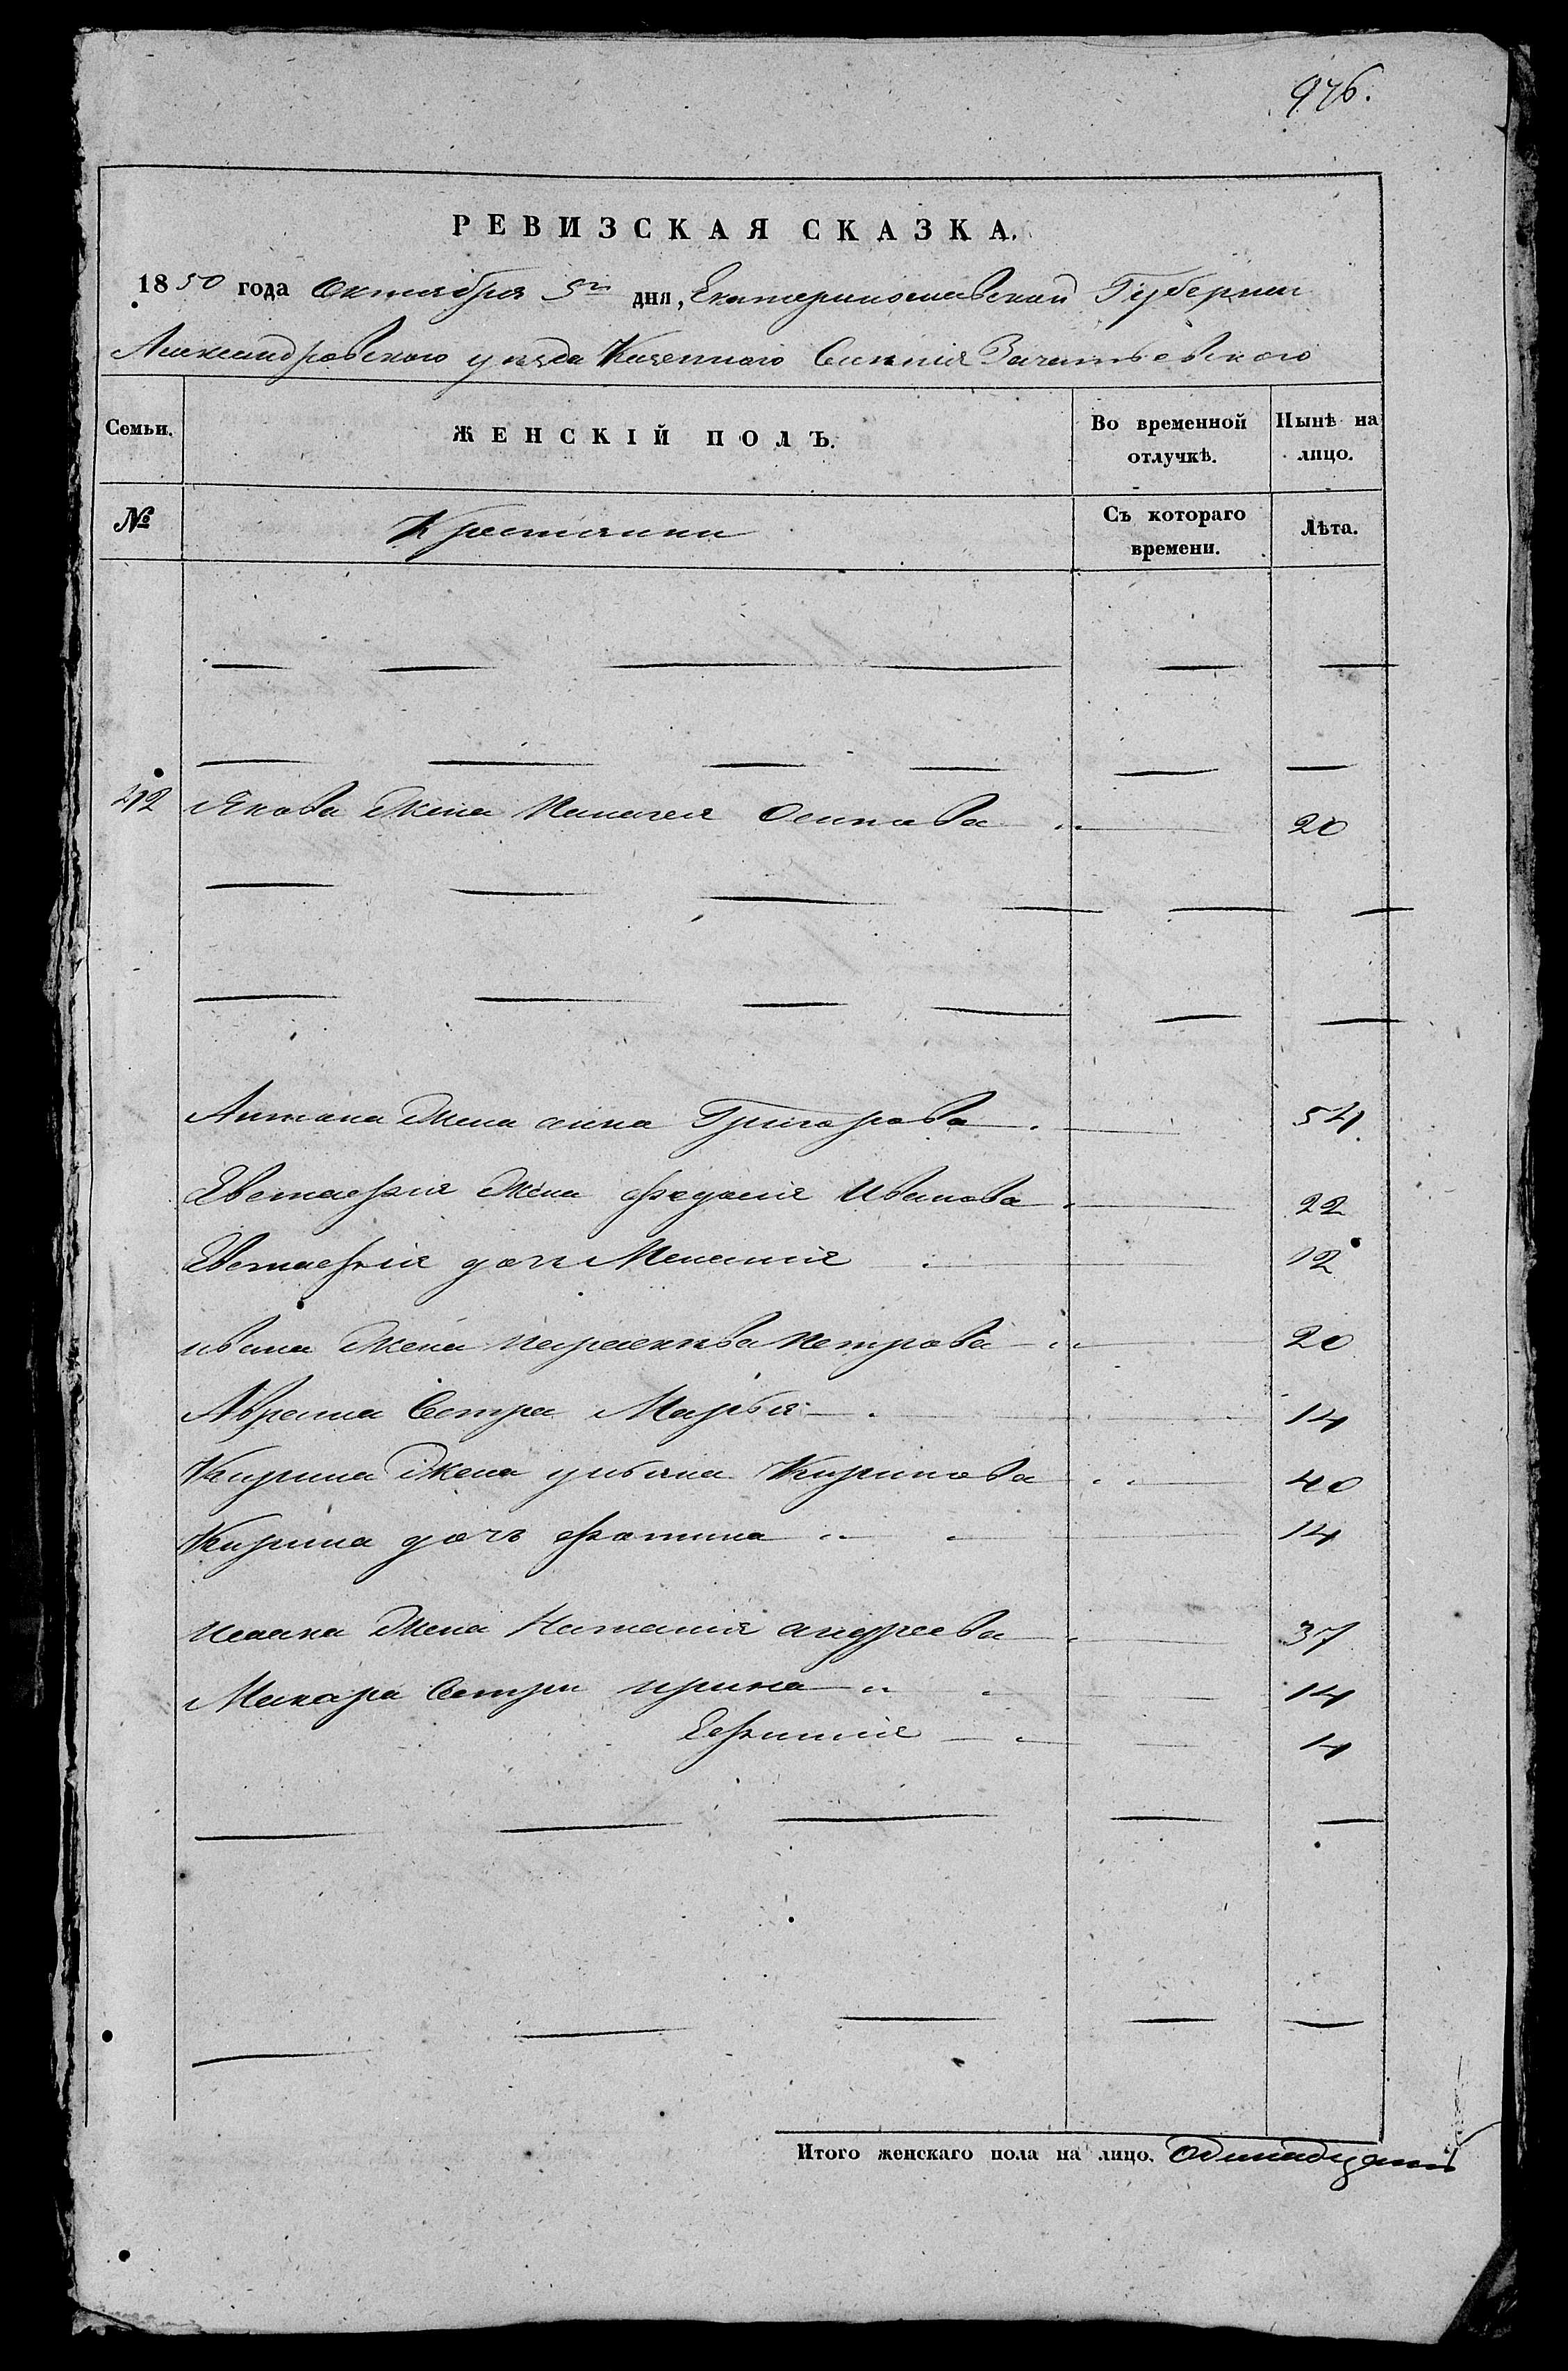 976.
РЕВИЗСКАЯ СКАЗКА.
1850 года Октября 5го дня, Екатеринославской Губернии
Александровского уезда Казенного Селения Зачатьевского
Семьи. ЖЕНСКІЙ ПОЛЪ. Во временной отлучкѣ. Нынѣ на лицо.
№ Крестьянки Съ котораго времени. Лѣта.
42 Якова Жена Пелагея Осипова 20
Антона Жена анна Григорова 54
Евстафия Жена Федосия Иванова 22
Евстафия дочь Мелания 12
ивана Жена Параскева Петрова 20
Аврама Сестра Марья 14
Кирила Жена ульяна Кирилова 40
Кирила дочь Фотина 14
исаака Жена Наталия андреева 37
Макара Сестры ирина 14
Ефимия 14
Итого женскаго пола на лицо. Одинадцать